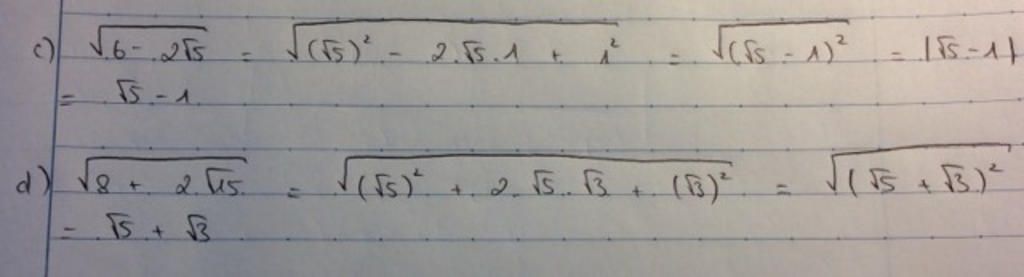 c) √(6 - 2√5) = √((√5)² - 2.√5.1 + 1²) = √((√5 - 1)²) = |√5 - 1|
= √5 - 1
d) √(8 + 2.√15) = √((√5)² + 2.√5.√3 + (√3)²) = √((√5 + √3)²)
= √5 + √3